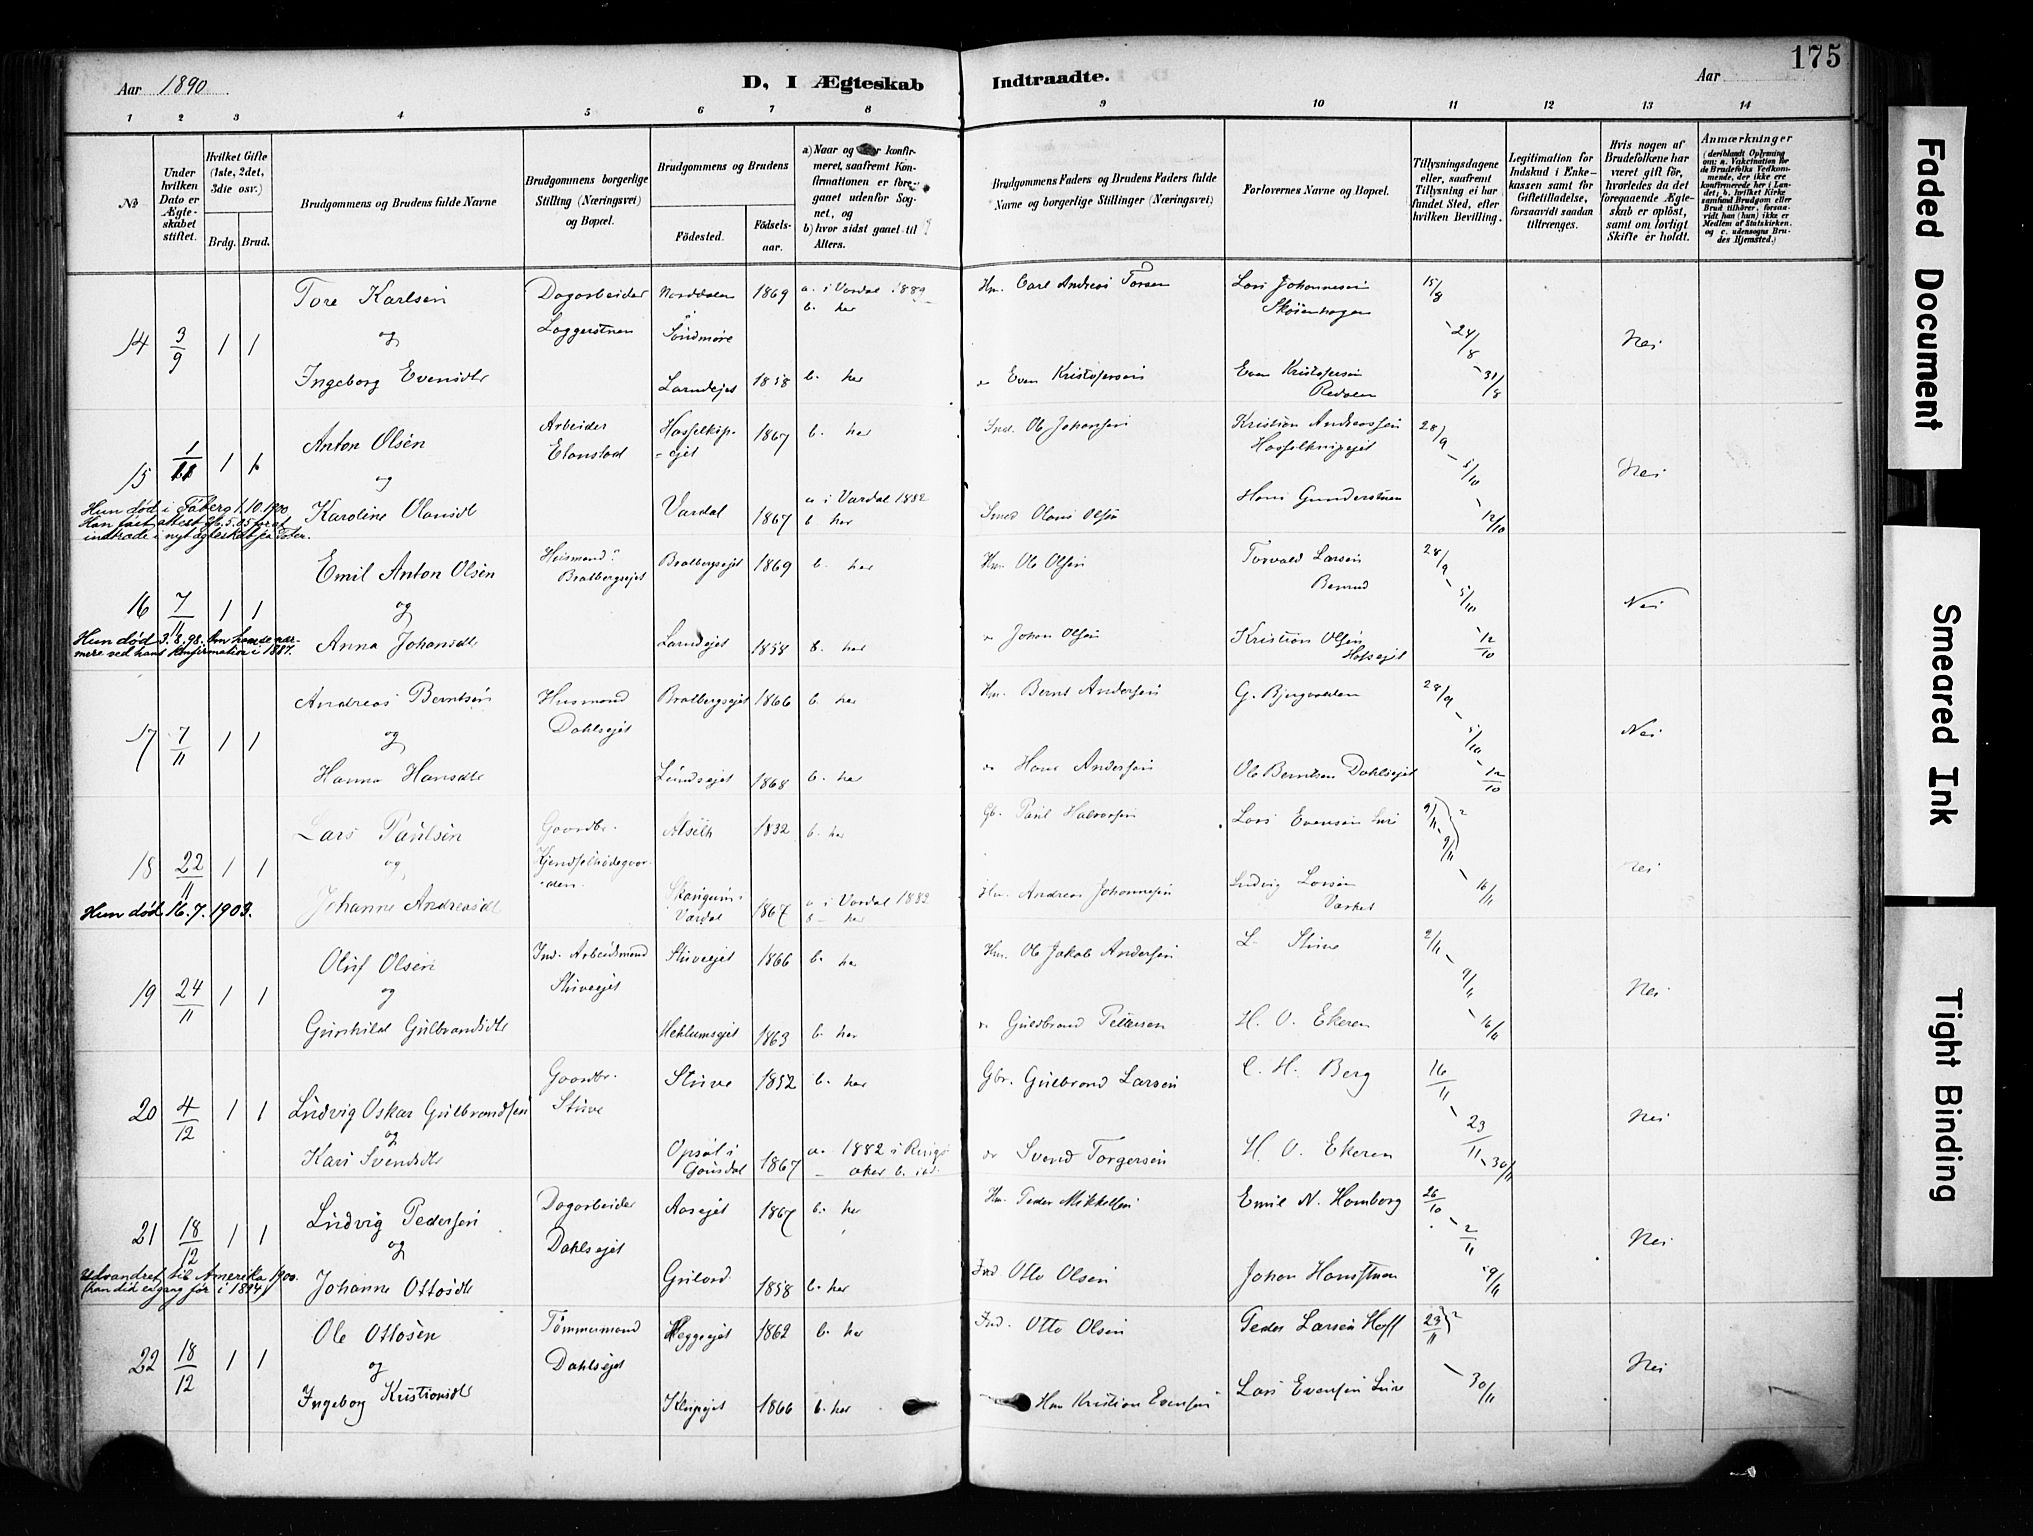 175
Aar 1890
D, I Ægteskab Indtraadte.
Aar
1 2 3 4 5 6 7 8 9 10 11 12 13 14
No
Under hvilken Dato er Ægteskabet stiftet.
Hvilket Gifte (1ste, 2det, 3die osv.)
Brdg. Brud.
Brudgommens og Brudens fulde Navne
Brudgommens borgerlige Stilling (Næringsvei) og Bopæl.
Brudgommens og Brudens
Fødested. Fødsels-aar.
a) Naar og konfir-
meret, saafremt Kon-
firmationen er fore-
gaaet udenfor Sog-
net, og
b) hvor sidst gaaet til
Alters.
Brudgommens Faders og Brudens Faders fulde
Navne og borgerlige Stillinger (Næringsvei)
Forlovernes Navne og Bopæl.
Tillysningsdagene
eller, saafremt
Tillysning ei har
fundet Sted, efter
hvilken Bevilling.
Legitimation for
Indskud i Enke-
kassen samt for
Giftetilladelse,
forsaavidt saadan
tiltrænges.
Hvis nogen af
Brudefolkene har
været gift før,
hvorledes da det
foregaaende Ægte-
skab er opløst,
samt om lovligt
Skifte er holdt.
Anmærkninger
(deriblandt Oplysning
om: a. Vakcination for
de Brudefolks Vedkom-
mende, der ikke ere
konfirmerede her i Lan-
det; b. hvilket Kirke-
samfund Brudgom eller
Brud tilhører, forsaa-
vidt han (hun) ikke er
Medlem af Statskirken,
og c. udensogns Bru-
des Hjemsted.)
14 3/9 1 1 Tore Karlsen Dagarbeider Norddalen 1869 a. i Vardal 1889 Hm. Carl Andreas Torsen Lars Johannesen 15/8
b. her
og Søndmøre - 24/8 Nei
Ingeborg Evensdtr 1858 b. her Even Kristofersen Even Kristofersen - 31/8
15 1/11 1 1 Anton Olsen Arbeider 1867 b. her Ole Johansen Kristian Andreassen 28/9
og - 5/10 Nei
Karoline Olausdt Vardal 1867 a i Vardal 1882 Smed Olaus Olsen Hans - 12/10
b her
Hun død i Faaberg 1.10.1900
Han faaet attest 26.5.05 for at
indtræde i nyt ægteskab fra Toten.
16 7/11 1 1 Emil Anton Olsen Husmand Bratbergsejet 1869 b. her Hm. Ole Olsen Torvald Larsen 28/9
Bratbergsejet
og - 5/10 Nei
Anna Johansdt 1858 b. her Johan Olsen Kristian Olsen - 12/10
Hun død 3.8.98.
mere ved hans Konfirmation i 1887.
17 7/11 1 1 Andreas Berntsen Husmand Bratbergsejet 1866 b. her Hm. Bernt Andersen 28/9
og Dahlsejet - 5/10 Nei
Hanna Hansdtr 1868 b. her Hans Andersen Ole Berntsen Dahlsejet - 12/10
18 22/11 1 1 Lars Paulsen Gaardbr. 1832 b. her Gb. Paul Halvorsen Lars Evensen 9/11
og nei
Johanne Andreasdt Vardal 1867 a i Vardal 1882 Hm. Andreas Johannesen Ludvig Larsen - 16/11
b - her
Hun død 16.7.1903.
19 24/11 1 1 Oluf Olsen Ind. Arbeidsmand Stuveejet 1866 b. her Hm. Ole Jakob Andersen L. Stuve 2/11
og Stuveejet - 9/11 Nei
Gunhild Gulbrandsdtr 1863 b. her Guldbrand Pettersen H. O. Ekeren - 16/11
20 4/12 1 1 Ludvig Oskar Gulbrandsen Gaardbr. Stuve 1852 b. her Gbr. Gulbrand Larsen C. H. Berg 16/11
og Stuve - 23/11 Nei
Kari Svendsdtr Opsal i Gausdal 1867 a. 1882 i Ringsaker Svend Torgersen H. O. Ekeren - 30/11
21 18/12 1 1 Ludvig Pedersen Dagarbeider Aasejet 1867 b. her Hm. Peder Mikkelsen Emil N. Homborg 26/10
og Dahlsejet - 2/11 Nei
Johanne Ottosdtr 1858 b. her Ind Otto Olsen Johan 9/11
Udvandret til Amerika 1900.
(han did engang før i 1894)
22 18/12 1 1 Ole Ottosen Tømmermand Heggeejet 1862 b. her Ind. Otto Olsen Peder Larsen Hoff 23/11
og Dahlsejet - 30/11 Nei
Ingeborg Kristiansdt 1866 b. her Hm Kristian Evensen Lars Evensen
Faded Document
Smeared Ink
Tight Binding